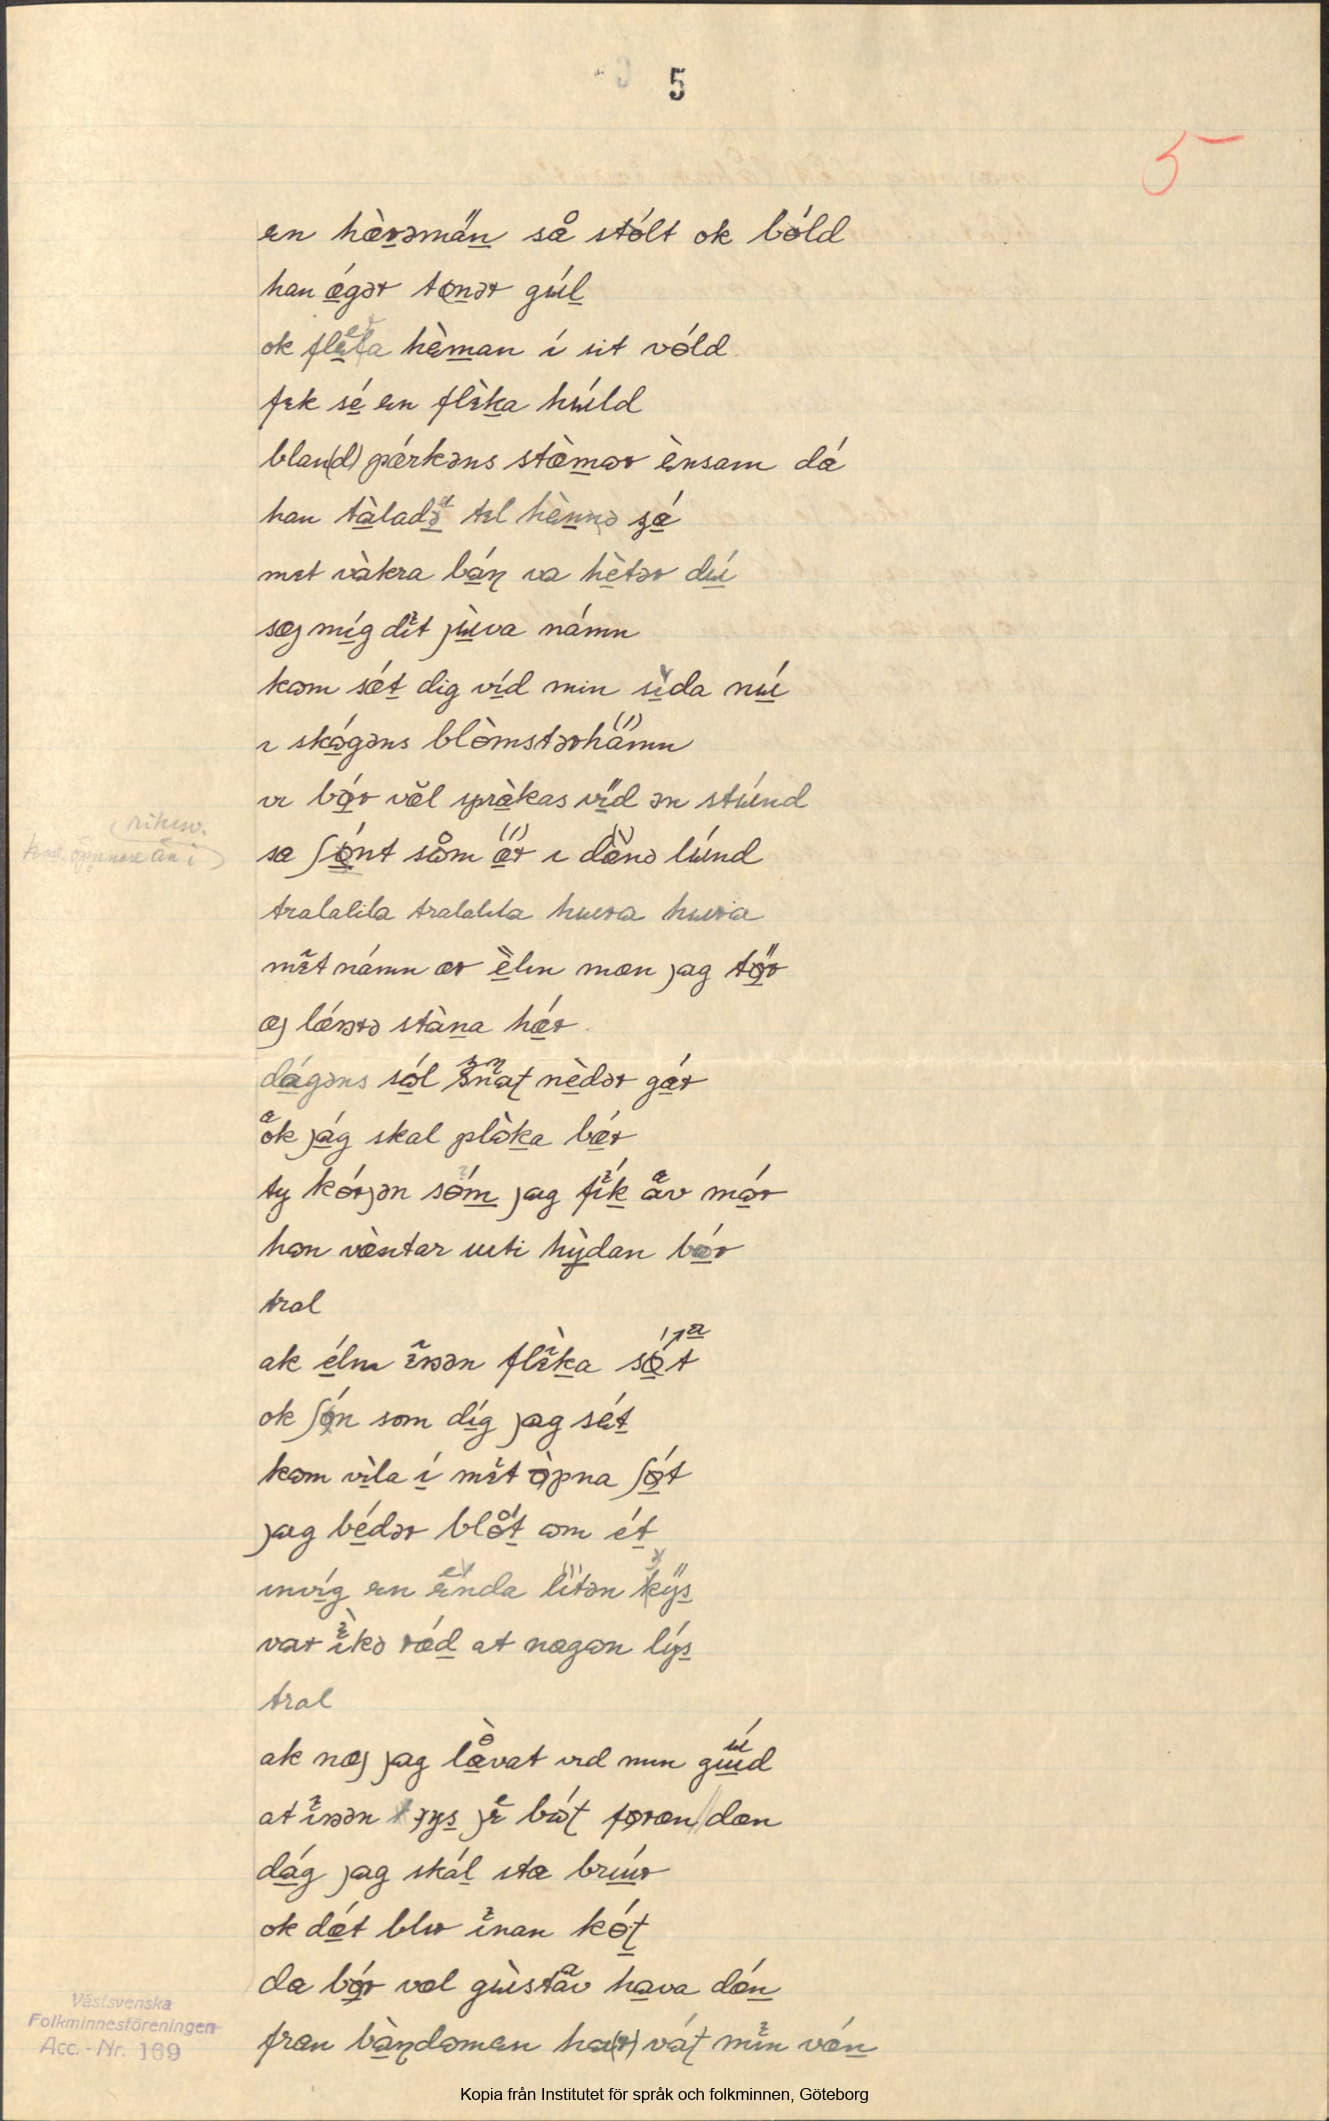 5
5
en hæ̀rəmän så stólt ok bóld
han ǽgər tonər gúl
ok flɛta hèman i sit vóld
fɛk sé en flɛ̀ka húld
blan(d) párkəns stæ̀mar ènsam dá
han tàladə tɛl hènnə sá
mɛt vàkra báɳ va hètər dú
sæj míg dɛt jùva námn
kom sǽt dig víd min sìda nú
ɩ skógəns blòmstərhämn
vɩ bǿr väl språ̀kas vid ən stúnd
rikssv.
öppnare än i
sa ʃǿnt såm ǽr ɩ dènə lúnd
tralalɩla tralalɩla hurra hurra
mɛt námn ær èlɩn mæn jag tör
æj lǽŋrə stàna hǽr
dágəns sól snaʈ nèdər gár
ok jág skal plòka bǽr
ty kórjən sóm jag fík av mór
han væ̀ntar uti hỳdan bór
tral
ak élɩn ɛŋən flɛ̀ka sǿt
ok ʃǿn som díg jag sét
kom vìla í mɛt ö̀pna ʃǿt
jag bédər blót om ét
unvíg en ènda lìtən kys
var ɛ̀kə rǽd at nagon lýs
tral
ak næj jag lòvat vɩd mɩn gúd
at ɛŋən kys je bóʈ foran // dæn
dág jag skál sta brúr
ok dǽt blɩr ɛnan kóʈ
da bǿr væl gùstav hava dén
fran bàɳdomen ha(r) váʈ mɛn vǽn
Västsvenska
Folkminnesföreningen
Acc.-Nr. 169
Kopia från Institutet för språk och folkminnen, Göteborg